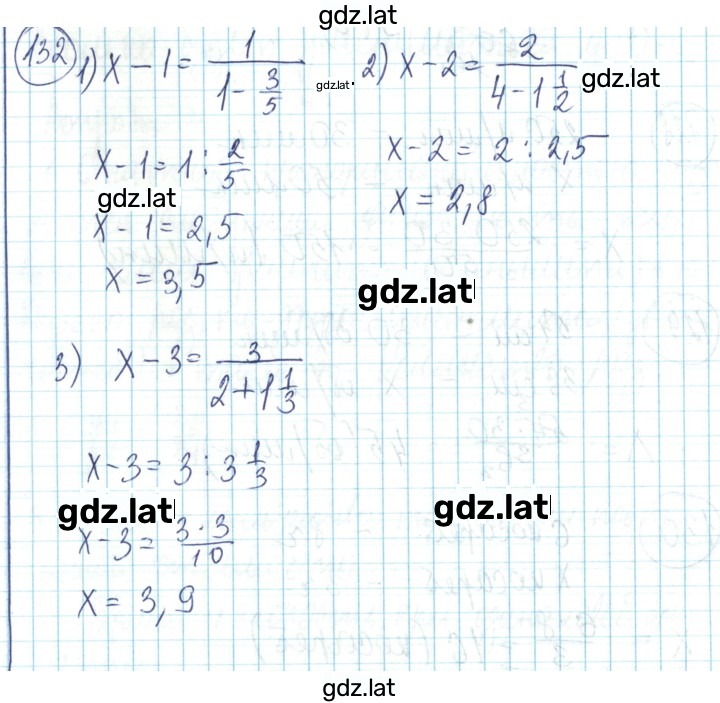 gdz.lat
132
1) x - 1 = 1 / (1 - 3/5)
gdz.lat
x - 1 = 1 : 2/5
gdz.lat
x - 1 = 2,5
x = 3,5
2) x - 2 = 2 / (4 - 1 1/2)
gdz.lat
x - 2 = 2 : 2,5
x = 2,8
gdz.lat
3) x - 3 = 3 / (2 + 1 1/3)
x - 3 = 3 : 3 1/3
gdz.lat
gdz.lat
x - 3 = 3 · 3 / 10
x = 3,9
gdz.lat